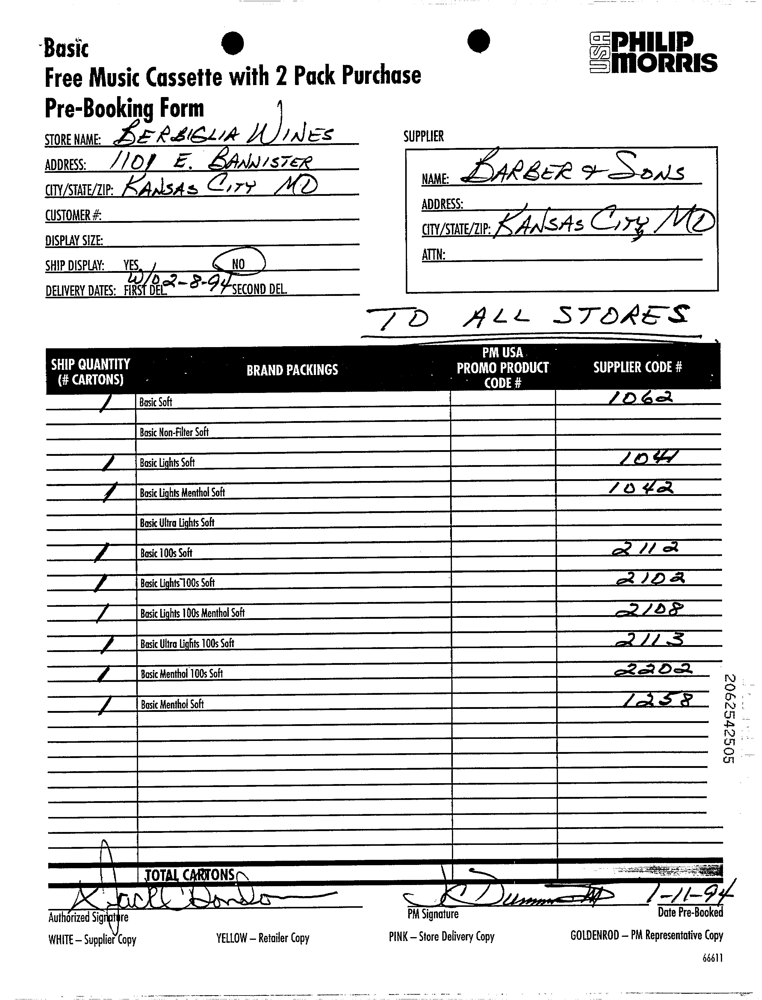 Basic
USA PHILIP MORRIS
Free Music Cassette with 2 Pack Purchase
Pre-Booking Form
STORE NAME: BERBIGLIA WINES
ADDRESS: 1101 E. BANNISTER
CITY/STATE/ZIP: KANSAS CITY MO
CUSTOMER #:
DISPLAY SIZE:
SHIP DISPLAY: YES NO
DELIVERY DATES: FIRST DEL. W/O 2-8-94 SECOND DEL.
SUPPLIER
NAME: BARBER & SONS
ADDRESS:
CITY/STATE/ZIP: KANSAS CITY, MO
ATTN:
TO ALL STORES
SHIP QUANTITY (# CARTONS) BRAND PACKINGS PM USA PROMO PRODUCT CODE # SUPPLIER CODE #
1 Basic Soft 1062
Basic Non-Filter Soft
1 Basic Lights Soft 1041
1 Basic Lights Menthol Soft 1042
Basic Ultra Lights Soft
1 Basic 100s Soft 2112
1 Basic Lights 100s Soft 2102
1 Basic Lights 100s Menthol Soft 2108
1 Basic Ultra Lights 100s Soft 2113
1 Basic Menthol 100s Soft 2202
1 Basic Menthol Soft 1258
2062542505
TOTAL CARTONS
X 1-11-94
Authorized Signature PM Signature Date Pre-Booked
WHITE – Supplier Copy YELLOW – Retailer Copy PINK – Store Delivery Copy GOLDENROD – PM Representative Copy
66611